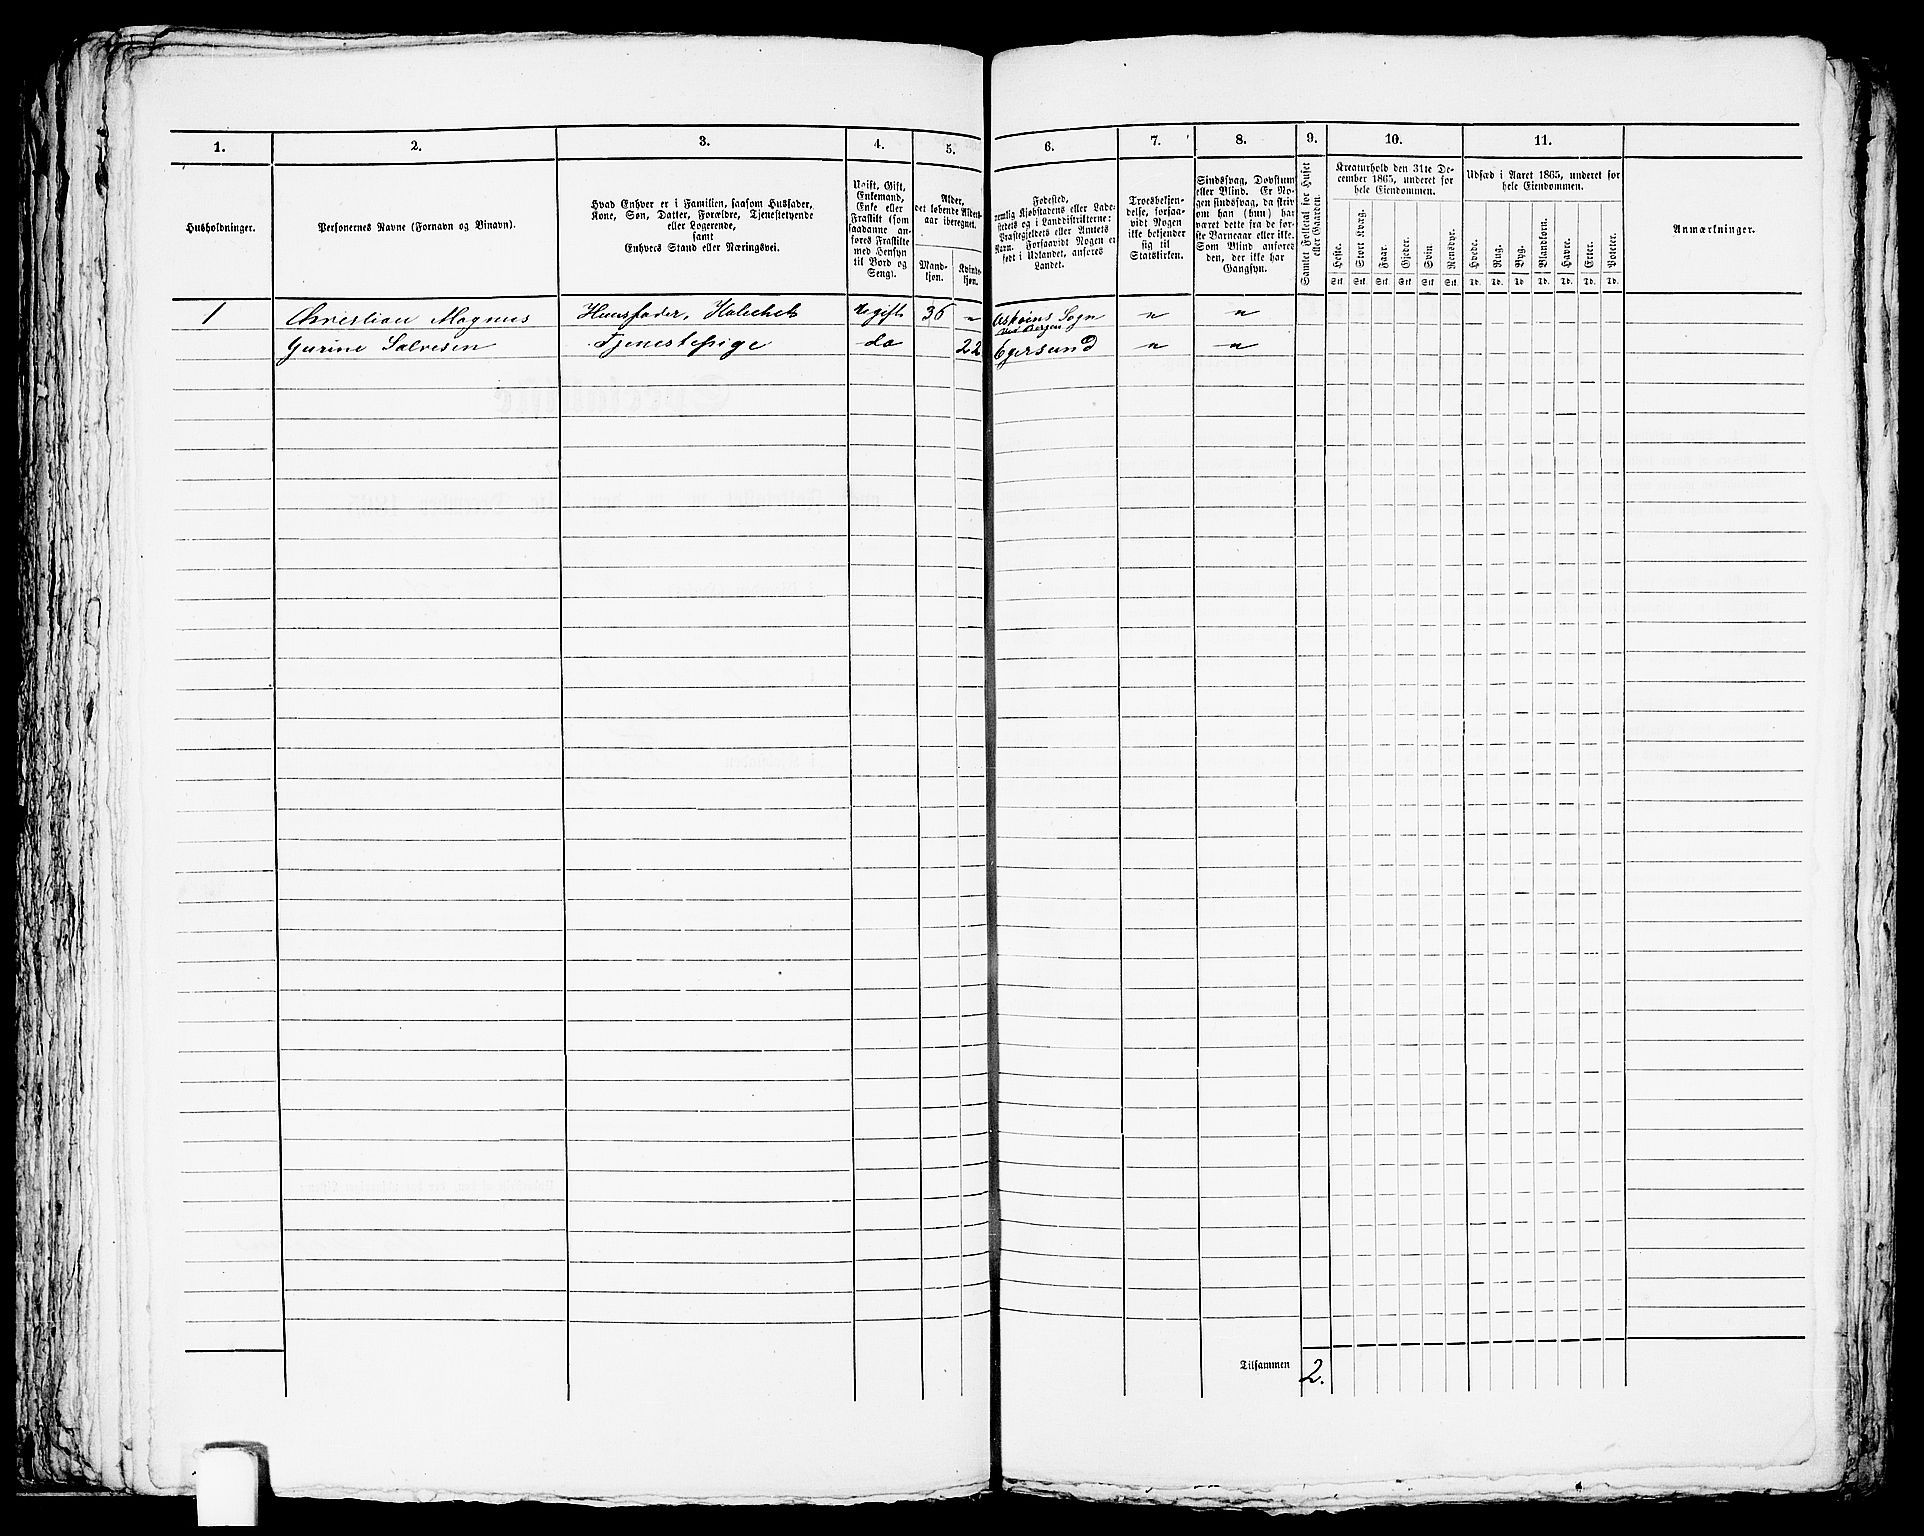 1. 2. 3. 4. 5. 6. 7. 8. 9. 10. 11.
Husholdninger.
Personernes Navne (Fornavn og Tilnavn).
Hvad Enhver er i Familien, saasom Husfader,
Kone, Søn, Datter, Forældre, Tjenestetyende
eller Logerende,
samt
Enhvers Stand eller Næringsvei.
Ugift, Gift,
Enkemand,
Enke eller
Fraskilt (som
saadanne an-
føres Fraskilte
med Hensyn
til Bord og
Seng).
Alder,
det løbende Alders-
aar iberegnet.
Mand-
kjøn.
Kvinde-
kjøn.
Fødested,
nemlig Kjøbstadens eller Lade-
stedets og i Landdistrikterne:
Præstegjeldets eller Amtets
Navn. Forsaavidt Nogen er
født i Udlandet, anføres
Landet.
Troesbekjen-
delse, forsaa-
vidt Nogen
ikke bekjender
sig til
Statskirken.
Sindssvag, Døvstum
eller Blind. Er No-
gen sindssvag, da skriv
om han (hun) har
været dette fra de før-
ste Barneaar eller ikke.
Som Blind anføres
den, der ikke har
Gangsyn.
Samlet Folketal for Huset
eller Gaarden.
Kreaturhold den 31te De-
cember 1865, underet for
hele Eiendommen.
Heste. Stort Kvæg. Faar. Gjeder. Svin Rensdyr.
Stk Stk Stk Stk Stk Stk
Udsæd i Aaret 1865, underet for
hele Eiendommen.
Hvede. Rug. Byg. Blandkorn. Havre. Erter. Poteter.
Td. Td. Td Td. Td. Td. Td.
Anmærkninger.
1 Christian Magnus Huusfader, Ugift 36 " Askøens Sogn " "
ved Bergen
Gurine Salvesen Tjenestepige do 22 Egersund " "
Tilsammen 2.